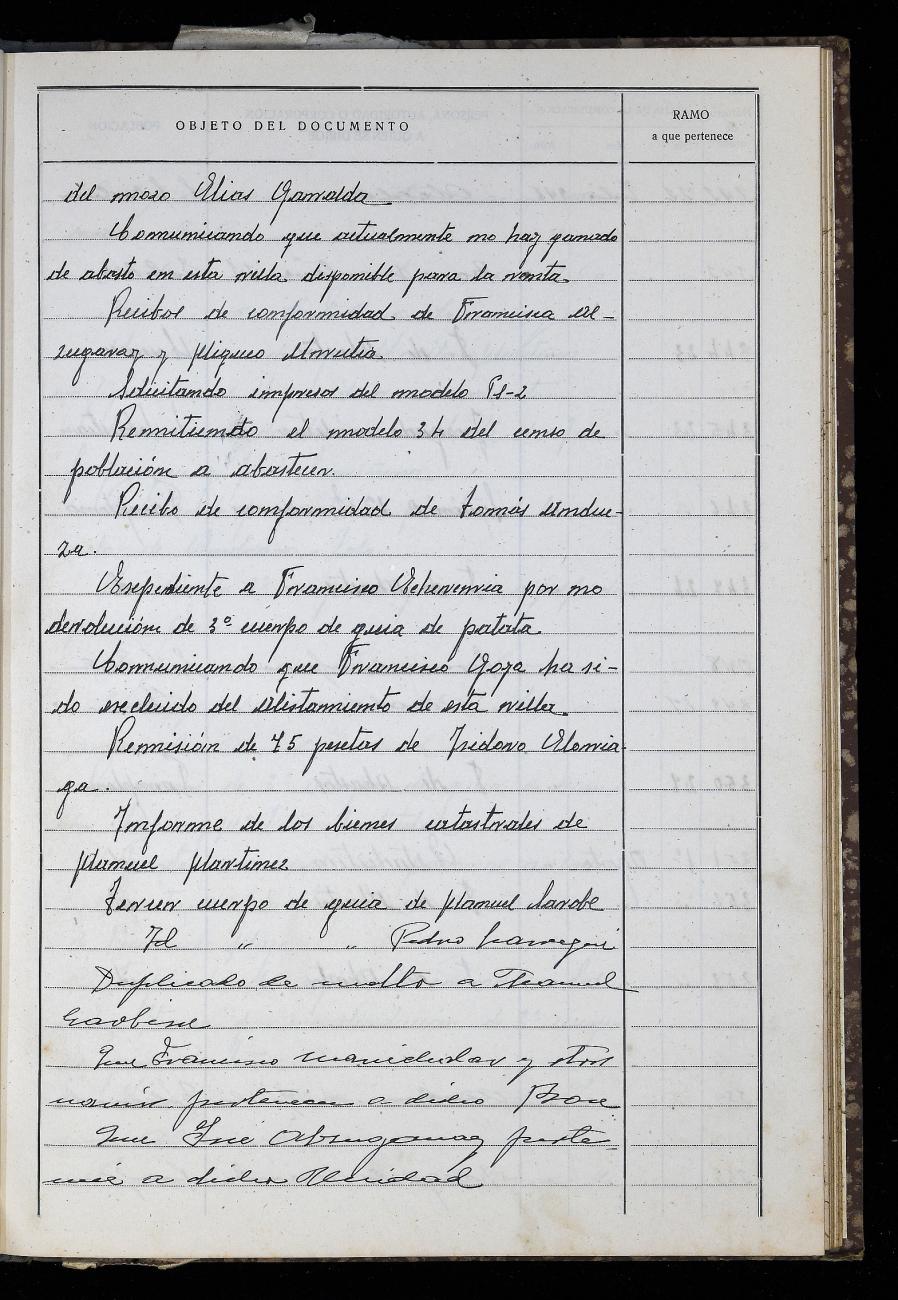 OBJETO DEL DOCUMENTO
RAMO
a que pertenece
del mozo Elias Ganialda
Comunicando que actualmente no hay ganado
de abasto en esta villa disponible para la venta
Recibos de conformidad de Francisca Al-
zugaray y Migueo Urrutia
Solicitando impresos del modelo Ps-2
Remitiendo el modelo 34 del censo de
población a abastecer.
Recibo de conformidad de Tomás Andue-
za.
Expediente a Francisco Echeverria por no
devolución de 3º cuerpo de guia de patata
Comunicando que Francisco Goya ha si-
do excluido del Alistamiento de esta villa
Remisión de 75 pesetas de Isidoro Elorria-
ga.
Informe de los bienes catastrales de
Manuel Martinez
Tercer cuerpo de guia de Manuel Sarobe
Id " " Pedro
Duplicado de multa a Manuel
Que Francisco y otros
pertenecen a dicho
Que José perte-
nece a dicha Unidad